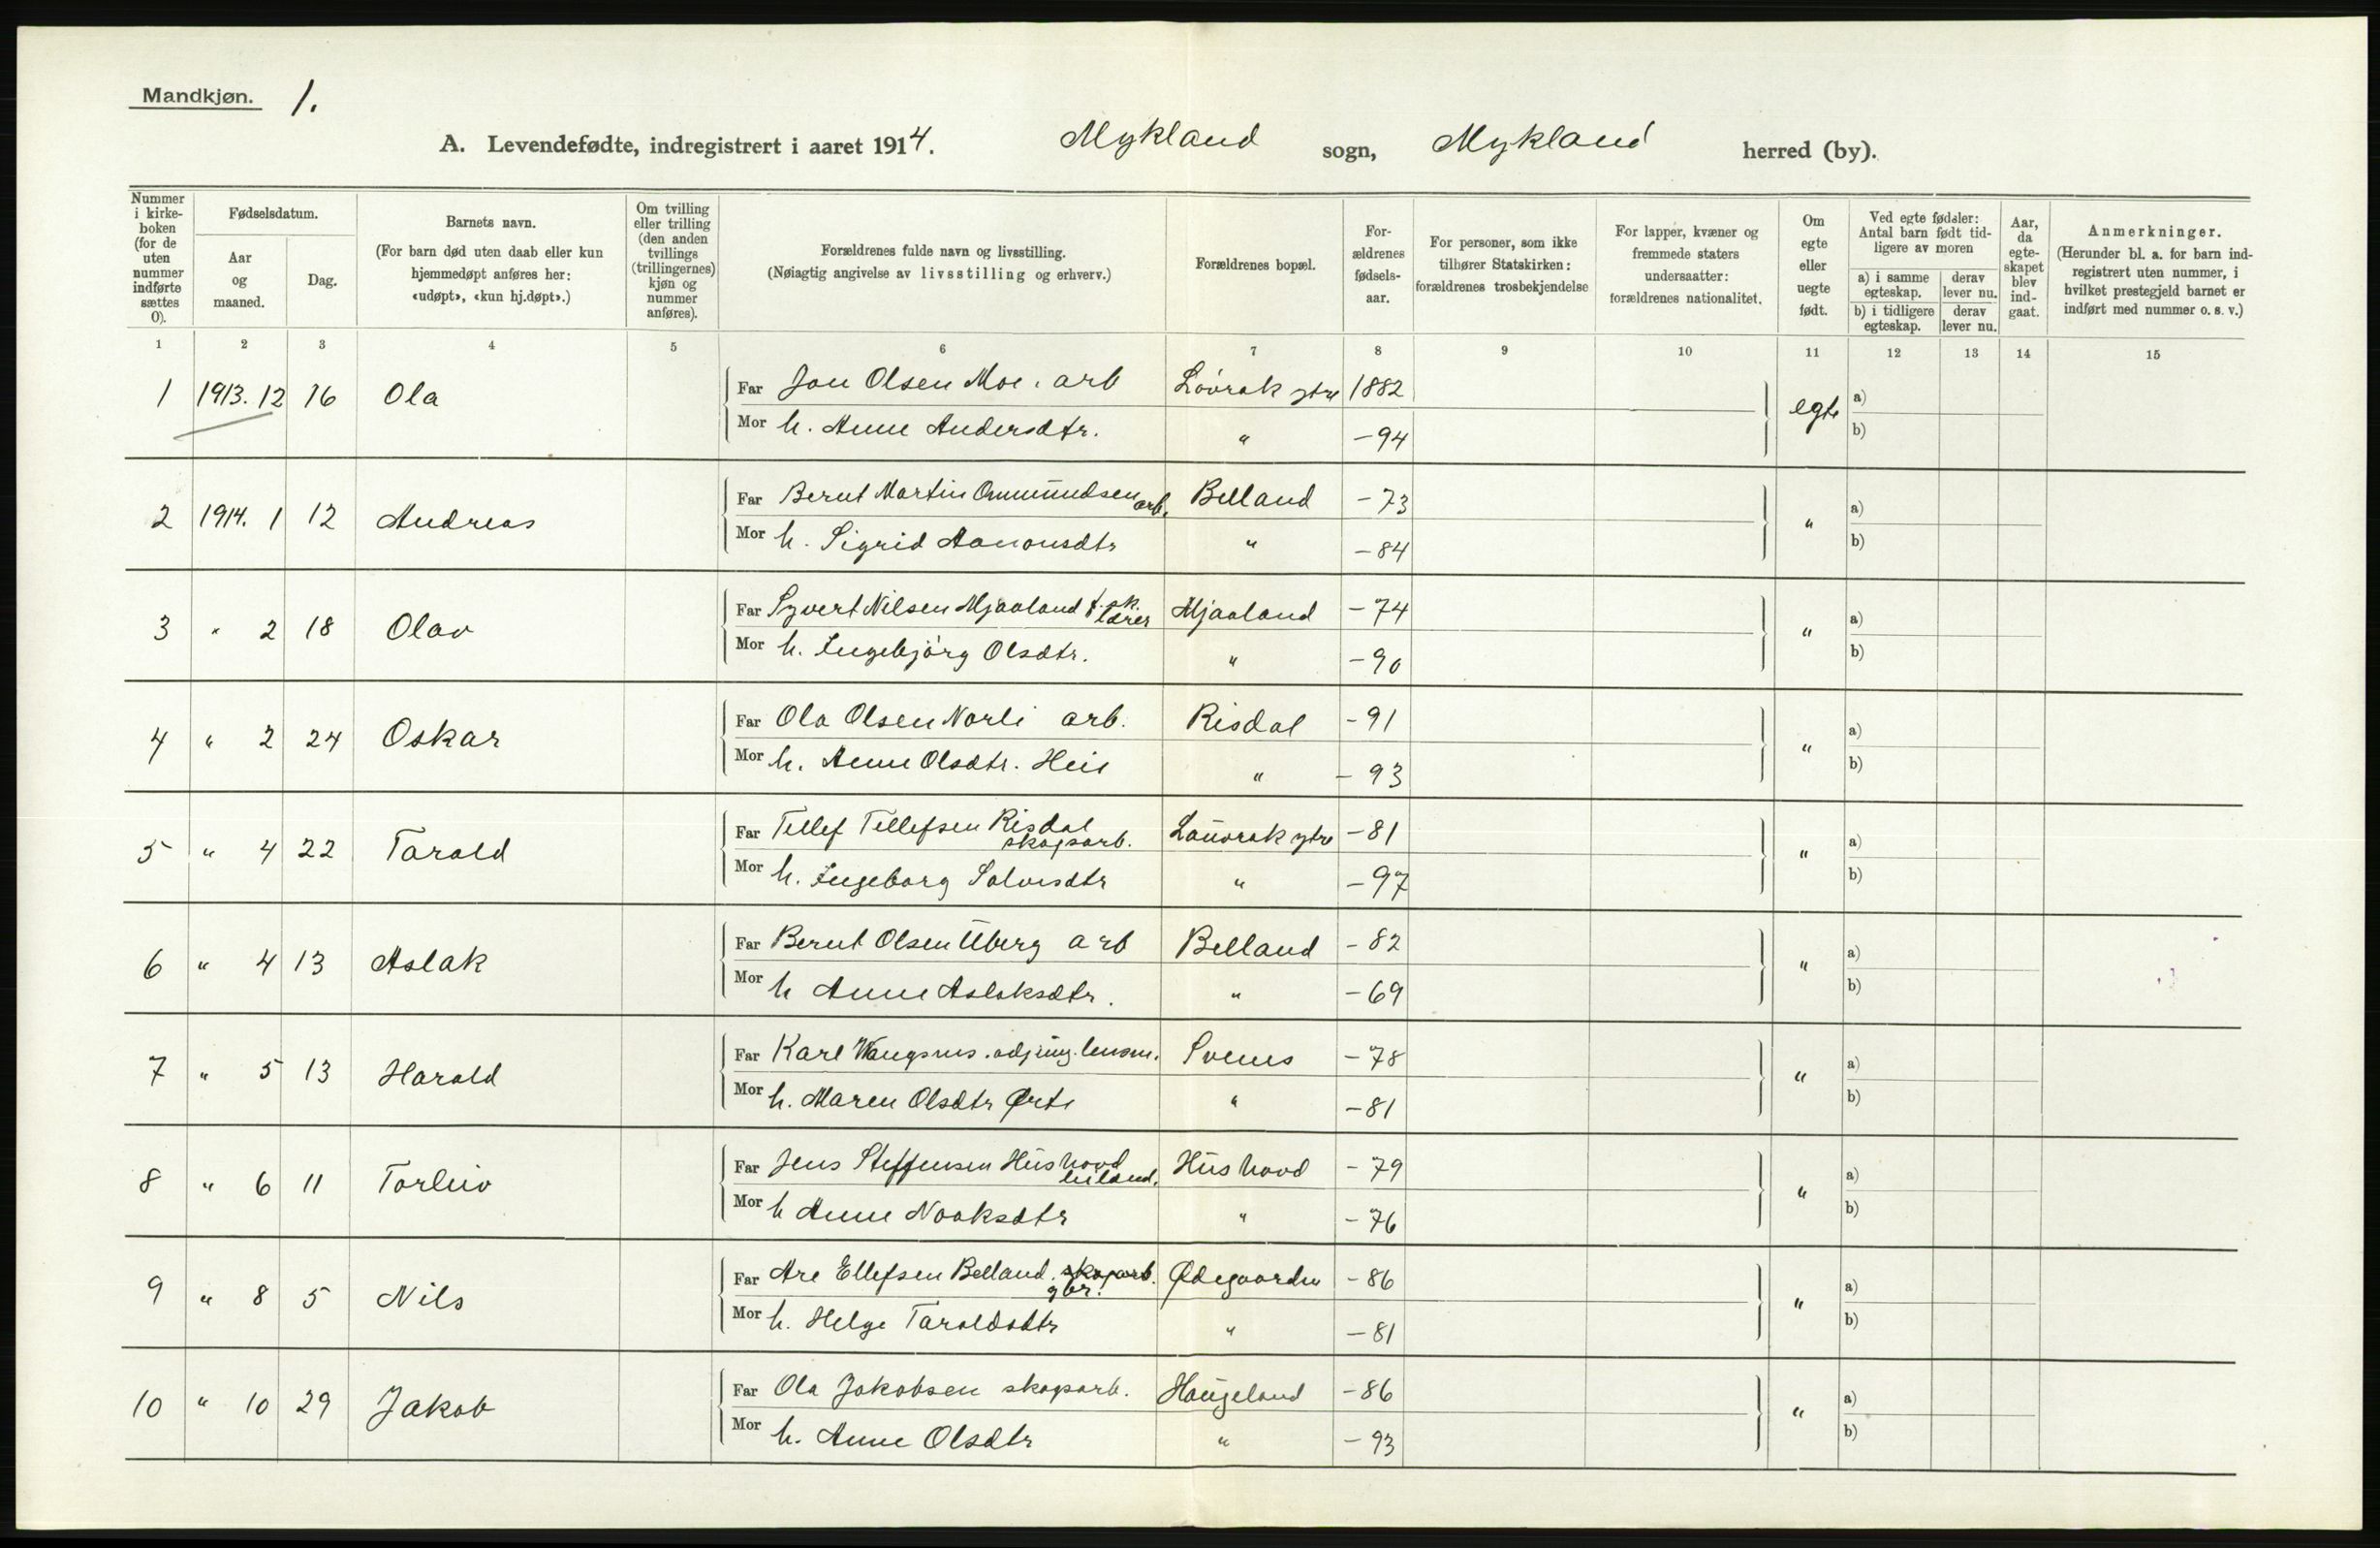 Mandkjøn. 1.
A. Levendefødte, indregistrert i aaret 1914. Mykland sogn, Mykland herred (by).
Nummer i kirkeboken (for de uten nummer indførte sættes 0).
Fødselsdatum.
Aar og maaned.
Dag.
Barnets navn.
(For barn død uten daab eller kun hjemmedøpt anføres her: «udøpt», «kun hj.døpt».)
Om tvilling eller trilling (den anden tvillings (trillingernes) kjøn og nummer anføres).
Forældrenes fulde navn og livsstilling.
(Nøiagtig angivelse av livsstilling og erhverv.)
Forældrenes bopæl.
Forældrenes fødselsaar.
For personer, som ikke tilhører Statskirken: forældrenes trosbekjendelse
For lapper, kvæner og fremmede staters undersaatter: forældrenes nationalitet.
Om egte eller uegte født.
Ved egte fødsler: Antal barn født tidligere av moren
a) i samme egteskap.
derav lever nu.
b) i tidligere egteskap.
derav lever nu.
Aar, da egteskapet blev indgaat.
Anmerkninger.
(Herunder bl. a. for barn indregistrert uten nummer, i hvilket prestegjeld barnet er indført med nummer o. s. v.)
1 2 3 4 5 6 7 8 9 10 11 12 13 14 15
1 1913. 12 16 Ola Far Jon Olsen Moe. arb Lövrak ytre 1882 egte a)
Mor h. Anne Andersdtr. " -94 b)
2 1914. 1 12 Andreas Far Bernt Martin Ommundsen arb. Belland -73 " a)
Mor h. Sigrid Aanonsdtr " -84 b)
3 " 2 18 Olav Far Syvert Nilsen Mjaaland f. sk. lärer Mjaaland -74 " a)
Mor h. Ingebjörg Olsdtr. " -90 b)
4 " 2 24 Oskar Far Ola Olsen Norli arb. Risdal -91 " a)
Mor h. Anne Olsdtr. Heie " -93 b)
5 " 4 22 Tarald Far Tellef Tellefsen Risdal skogsarb. Lauvrak ytre -81 " a)
Mor h. Ingeborg Salvesdtr " -97 b)
6 " 4 13 Aslak Far Bernt Olsen Uberg arb Belland -82 " a)
Mor h Anne Aslaksdtr. " -69 b)
7 " 5 13 Harald Far Karl Vangsnes. adjung. lensm. Svenes -78 " a)
Mor h. Maren Olsdtr " -81 b)
8 " 6 11 Torleiv Far Jens Steffensen Hushovd leiland. Hushovd -79 " a)
Mor h Anne Noaksdtr " -76 b)
9 " 8 5 Nils Far Are Ellefsen Belland. skogarb. gbr. Ødegaarden -86 " a)
Mor h. Helge Taraldsdtr " -81 b)
10 " 10 29 Jakob Far Ola Jakobsen skogsarb. Haugeland -86 " a)
Mor h. Anne Olsdtr " -93 b)